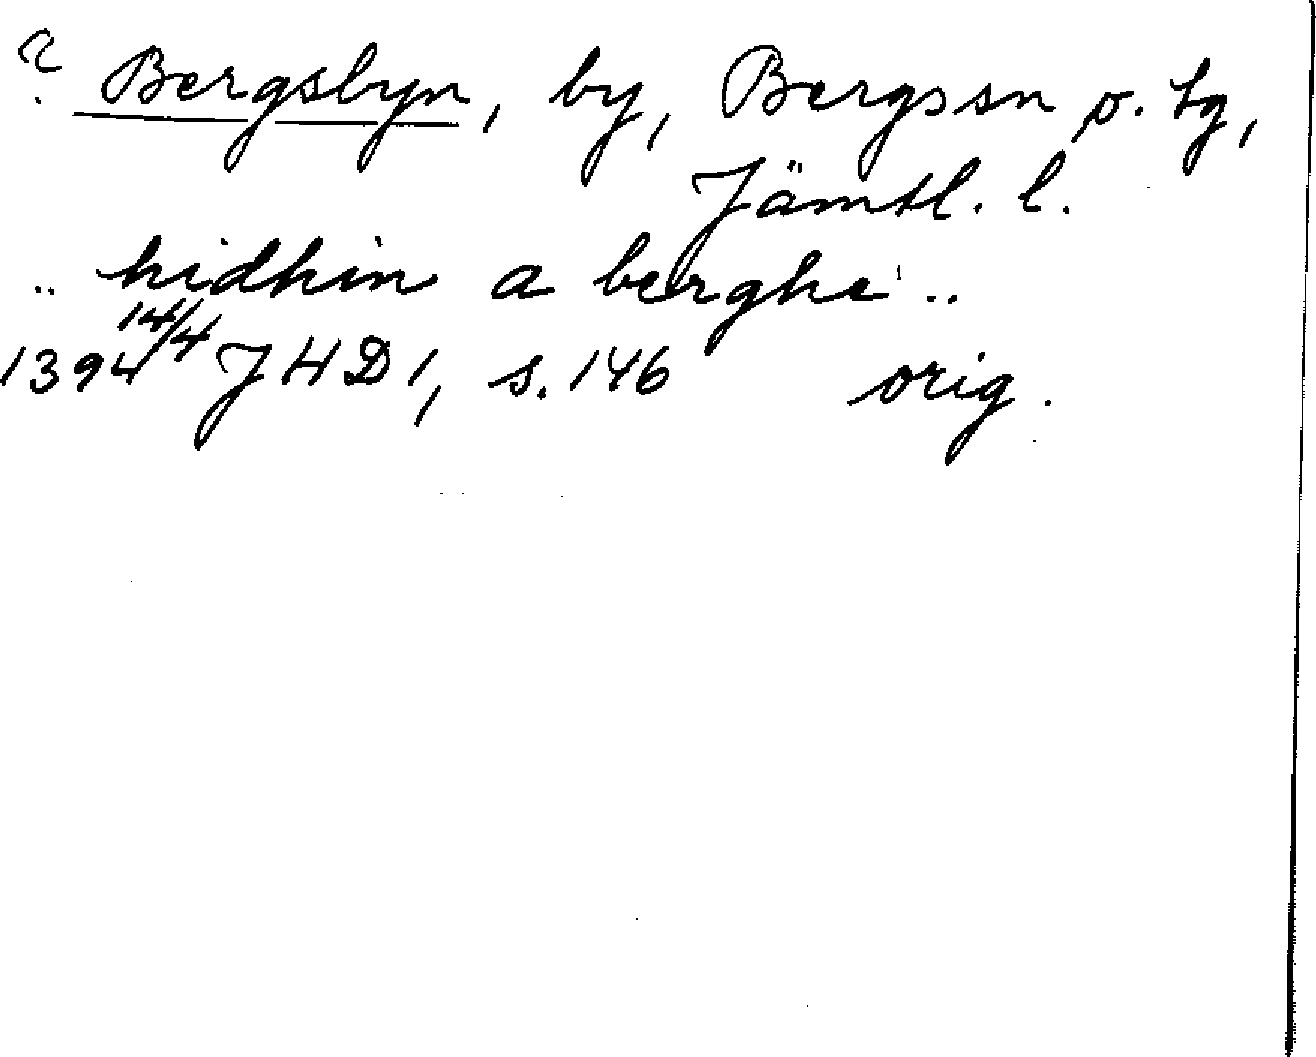 ? Bergsbyn, by, Bergs sn o. tg,
Jämtl. l.
.. hidhin a berghe ..
1394 14/4 JHD 1, s. 146 orig.